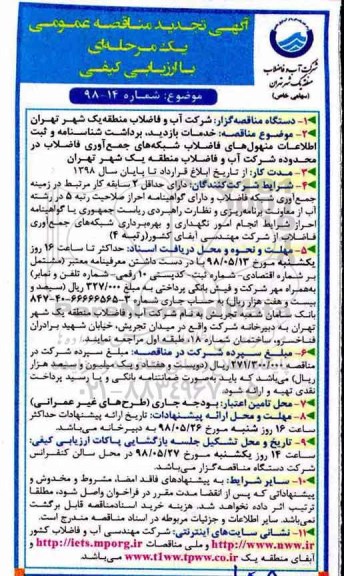 آگهی تجدید مناقصه عمومی
یک مرحله‌ای
با ارزیابی کیفی
شرکت آب و فاضلاب
منطقه یک شهر تهران
(سهامی خاص)
موضوع: شماره ۱۴-۹۸
۱- دستگاه مناقصه‌گزار: شرکت آب و فاضلاب منطقه یک شهر تهران
۲- موضوع مناقصه: خدمات بازدید، برداشت شناسنامه و ثبت
اطلاعات منهول‌های فاضلاب شبکه‌های جمع‌آوری فاضلاب در
محدوده شرکت آب و فاضلاب منطقه یک شهر تهران
۳- مدت کار: از تاریخ ابلاغ قرارداد تا پایان سال ۱۳۹۸
۴- شرایط شرکت‌کنندگان: دارای حداقل ۲ سابقه کار مرتبط در زمینه
جمع‌آوری شبکه فاضلاب و دارای گواهینامه احراز صلاحیت رتبه ۵ در رشته
آب از معاونت برنامه‌ریزی و نظارت راهبردی ریاست جمهوری یا گواهینامه
احراز شرایط انجام امور نگهداری و بهره‌برداری شبکه‌های جمع‌آوری
فاضلاب از شرکت مهندسی آبفای کشور (رتبه ۴)
۵- مهلت و نحوه و محل دریافت اسناد: حداکثر تا ساعت ۱۶ روز
یکشنبه مورخ ۹۸/۰۵/۱۳ با در دست داشتن معرفینامه معتبر (مشتمل
بر شماره اقتصادی- شماره ثبت- کدپستی ۱۰ رقمی- شماره تلفن و نمابر)
به‌همراه مهر شرکت و فیش بانکی پرداختی به مبلغ ۳۲۷/۰۰۰ ریال (سیصد و
بیست و هفت هزار ریال) به حساب جاری شماره ۳-۶۶۶۶۶۵۶۵-۴۰-۸۴۷
بانک سامان شعبه تجریش به نام شرکت آب و فاضلاب منطقه یک شهر
تهران به دبیرخانه شرکت واقع در میدان تجریش، خیابان شهید برادران
فناخسرو، ساختمان شماره ۱۸، طبقه اول مراجعه نمایند.
۶- مبلغ سپرده شرکت در مناقصه: مبلغ سپرده شرکت در
مناقصه ۲۷۱/۳۰۰/۰۰۰ ریال (دویست و هفتاد و یک میلیون و سیصد هزار
ریال) می‌باشد که باید بصورت ضمانتنامه بانکی و یا رسید پرداخت
نقدی تهیه و ارائه شود.
۷- محل تامین اعتبار: بودجه جاری (طرح‌های غیر عمرانی)
۸- مهلت و محل ارائه پیشنهادات: تاریخ ارائه پیشنهادات حداکثر
ساعت ۱۶ روز شنبه مورخ ۹۸/۰۵/۲۶ به دبیرخانه می‌باشد.
۹- تاریخ و محل تشکیل جلسه بازگشایی پاکات ارزیابی کیفی:
ساعت ۱۴ روز یکشنبه مورخ ۹۸/۰۵/۲۷ در محل سالن کنفرانس
شرکت دستگاه مناقصه‌گزار می‌باشد.
۱۰- سایر شرایط: به پیشنهادهای فاقد امضا، مشروط و مخدوش و
پیشنهاداتی که پس از انقضا مدت مقرر در فراخوان واصل شود، مطلقا
ترتیب اثر داده نخواهد شد. هزینه خرید اسناد مناقصه قابل برگشت
نمی‌باشد. سایر اطلاعات و جزئیات مربوطه در اسناد مناقصه مندرج است.
۱۱- نشانی سایت‌های اینترنتی: شرکت مهندسی آب و فاضلاب کشور
http://www.nww.ir و ملی مناقصات http://iets.mporg.ir و
آبفای منطقه یک www.t1ww.tpww.co.ir می‌باشد.